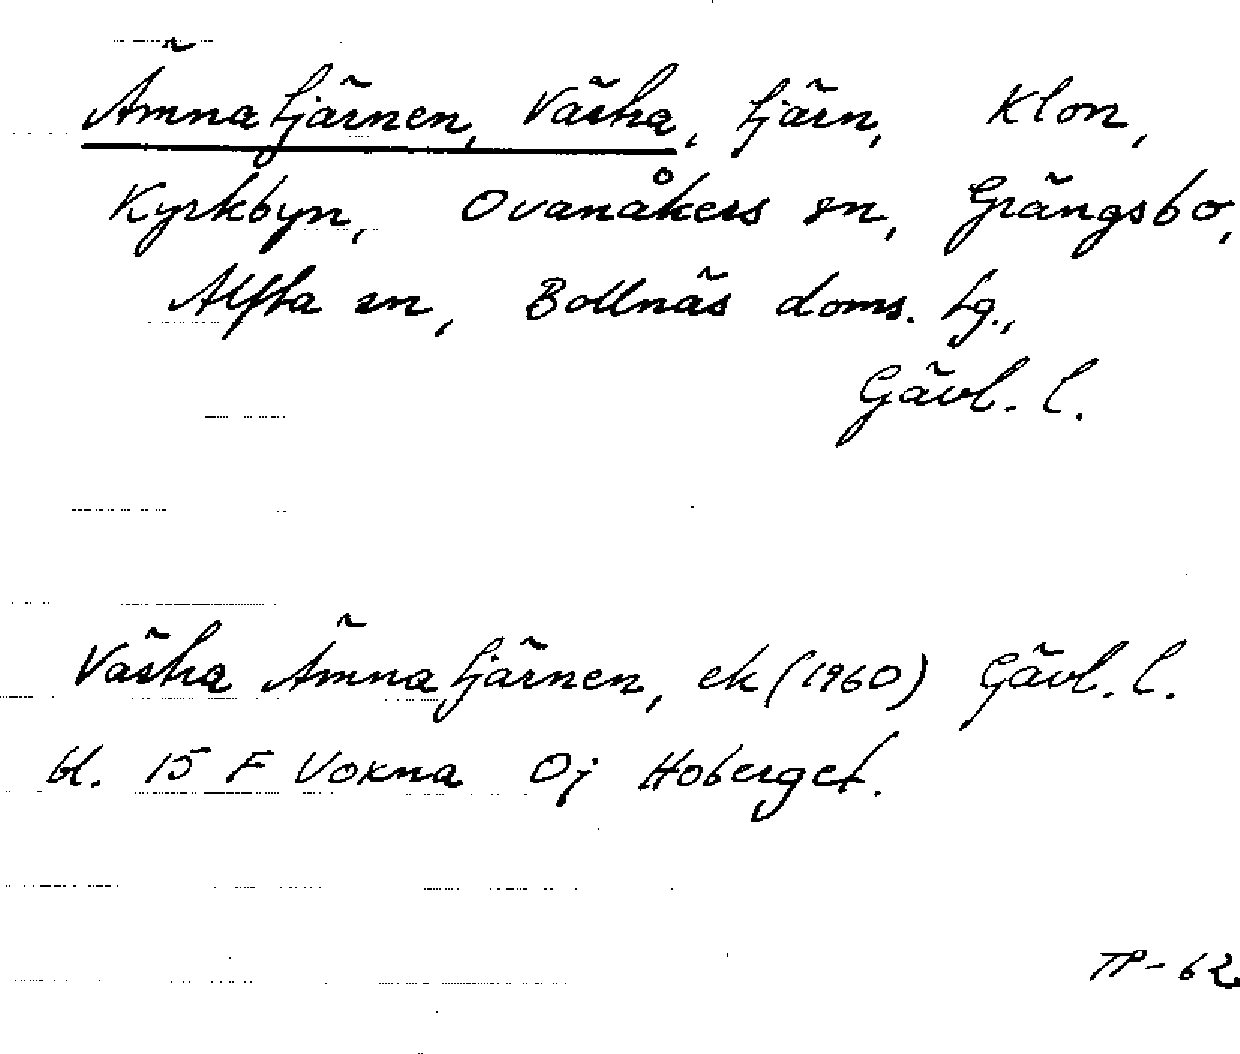 Ämnatjärnen, Västra, tjärn, Klon,
Kyrkbyn, Ovanåkers sn, Grängsbo,
Alfta sn, Bollnäs doms. tg.,
Gävl. l.
Västra Ämnatjärnen, ek (1960) Gävl. l.
bl. 15 F Voxna Oj Hoberget.
TP-62